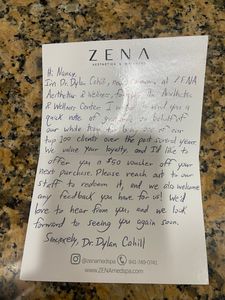 ZENA
AESTHETICS & WELLNESS
Hi Nancy,
I'm Dr. Dylan Cahill, new owner at ZENA
Aesthetics & Wellness, formerly The Aesthetic
& Wellness Center. I wanted to send you a
quick note of gratitude on behalf of
our whole team for being one of our
top 100 clients over the past several years.
We value your loyalty, and I'd like to
offer you a $50 voucher off your
next purchase. Please reach out to our
staff to redeem it, and we also welcome
any feedback you have for us! We'd
love to hear from you, and we look
forward to seeing you again soon.
Sincerely, Dr. Dylan Cahill
@zenamedspa 941-749-0741
www.ZENAmedspa.com